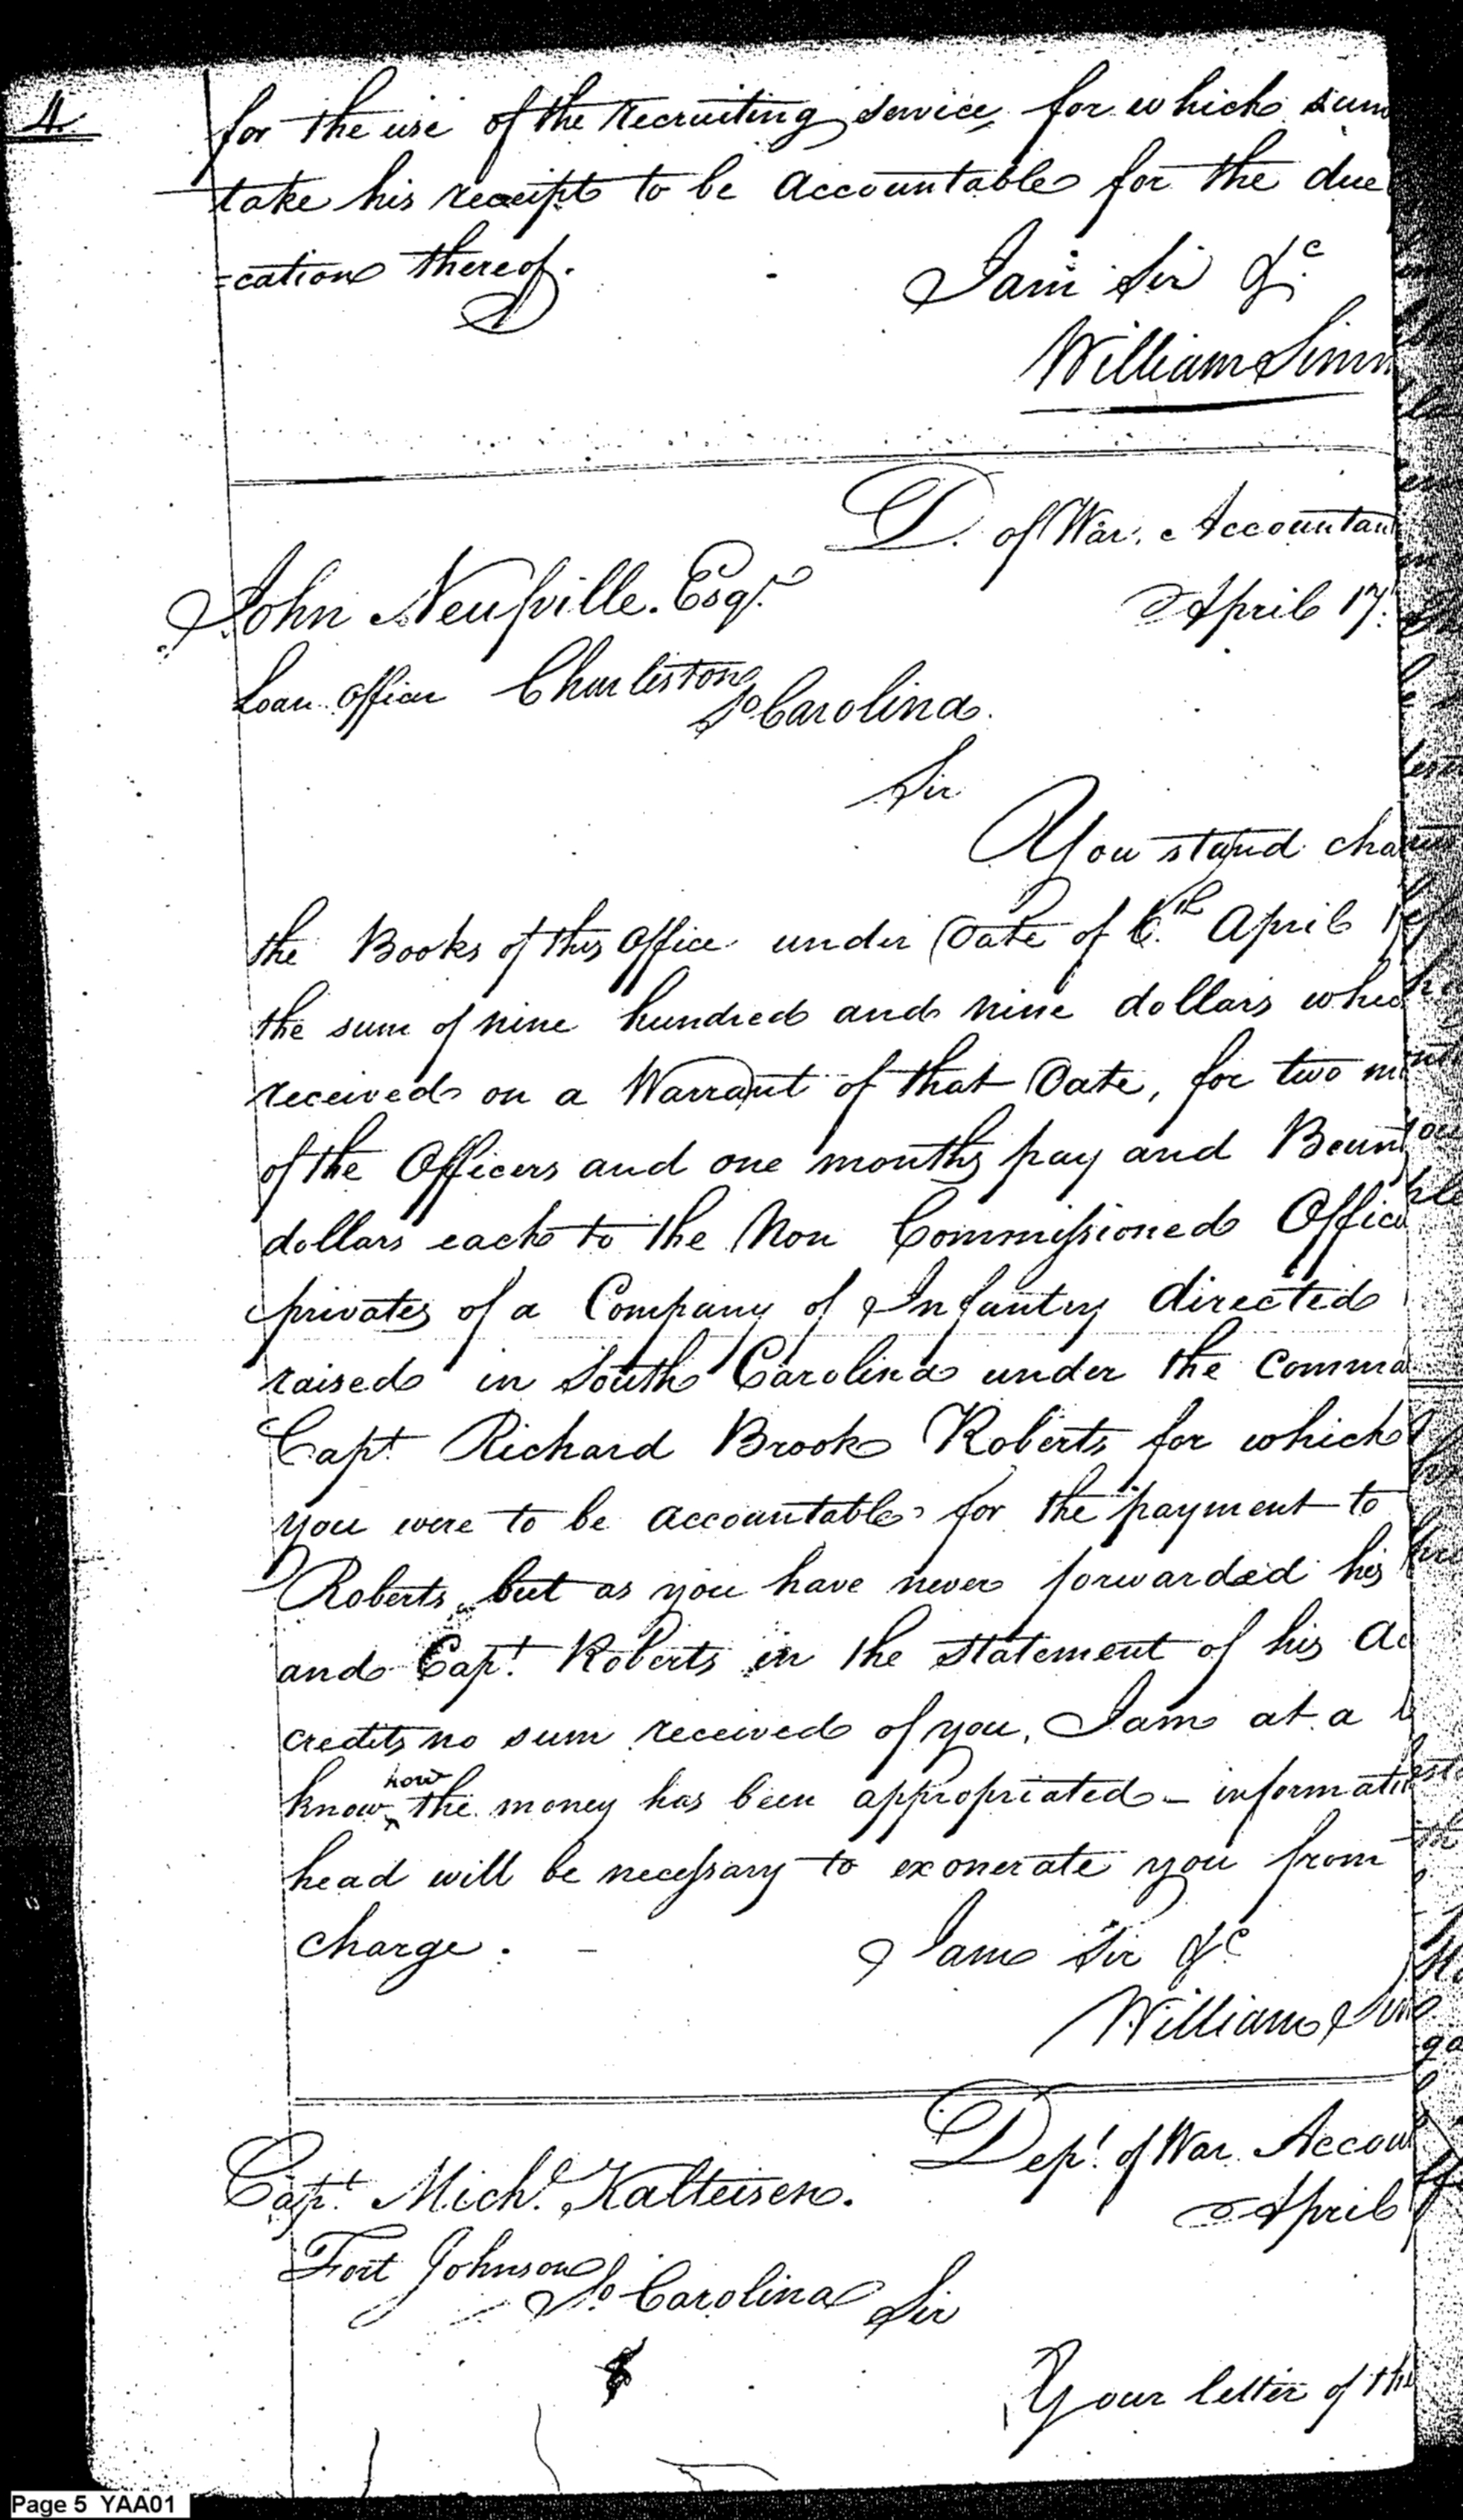 4.
for the use of the recruiting service, for which sum
take his receipt to be accountable for the due
=cation thereof.
I am Sir &c
William Simm
D. of War. Accountant
John Neufville. Esqr.
April 17.
Loan Officer Charleston
So Carolina.
Sir
You stand cha
the Books of this Office under Date of 6.th April
the sum of nine hundred and nine dollars whic
received on a Warrant of that Date, for two m
of the Officers and one months pay and Boun
dollars each to the Non Commissioned Office
privates of a Company of Infantry directed
raised in South Carolina under the comma
Capt Richard Brook Roberts for which
you were to be accountable for the payment to
Roberts, but as you have never forwarded his
and Capt. Roberts in the statement of his Ac
credits no sum received of you, I am at a l
know how the money has been appropriated - informati
head will be necessary to exonerate you from
charge. -
I am Sir &c
William Sim
Dept. of War Accou
Capt. Michl. Kalteisen.
April
Fort Johnson
So. Carolina
Sir
Your letter of the
Page 5 YAA01